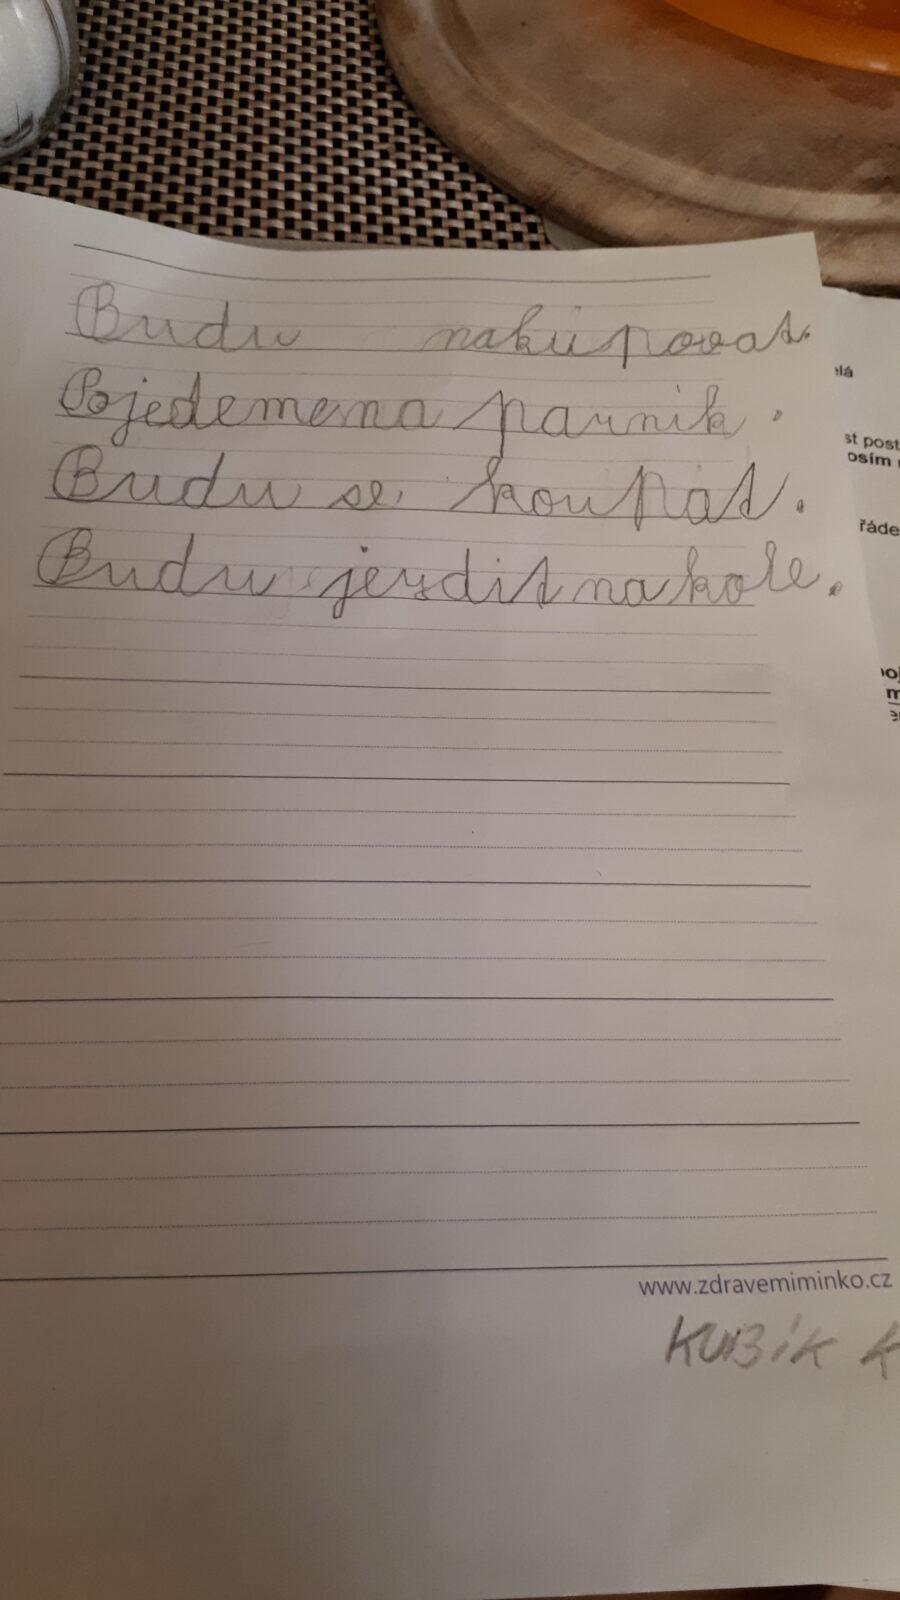 Budu nakupovat.
Pojedemena parnik.
Budu se koupat.
Budu jezdit na kole.
elá
st post
osím
řáde
www.zdravemiminko.cz
KUBÍK K